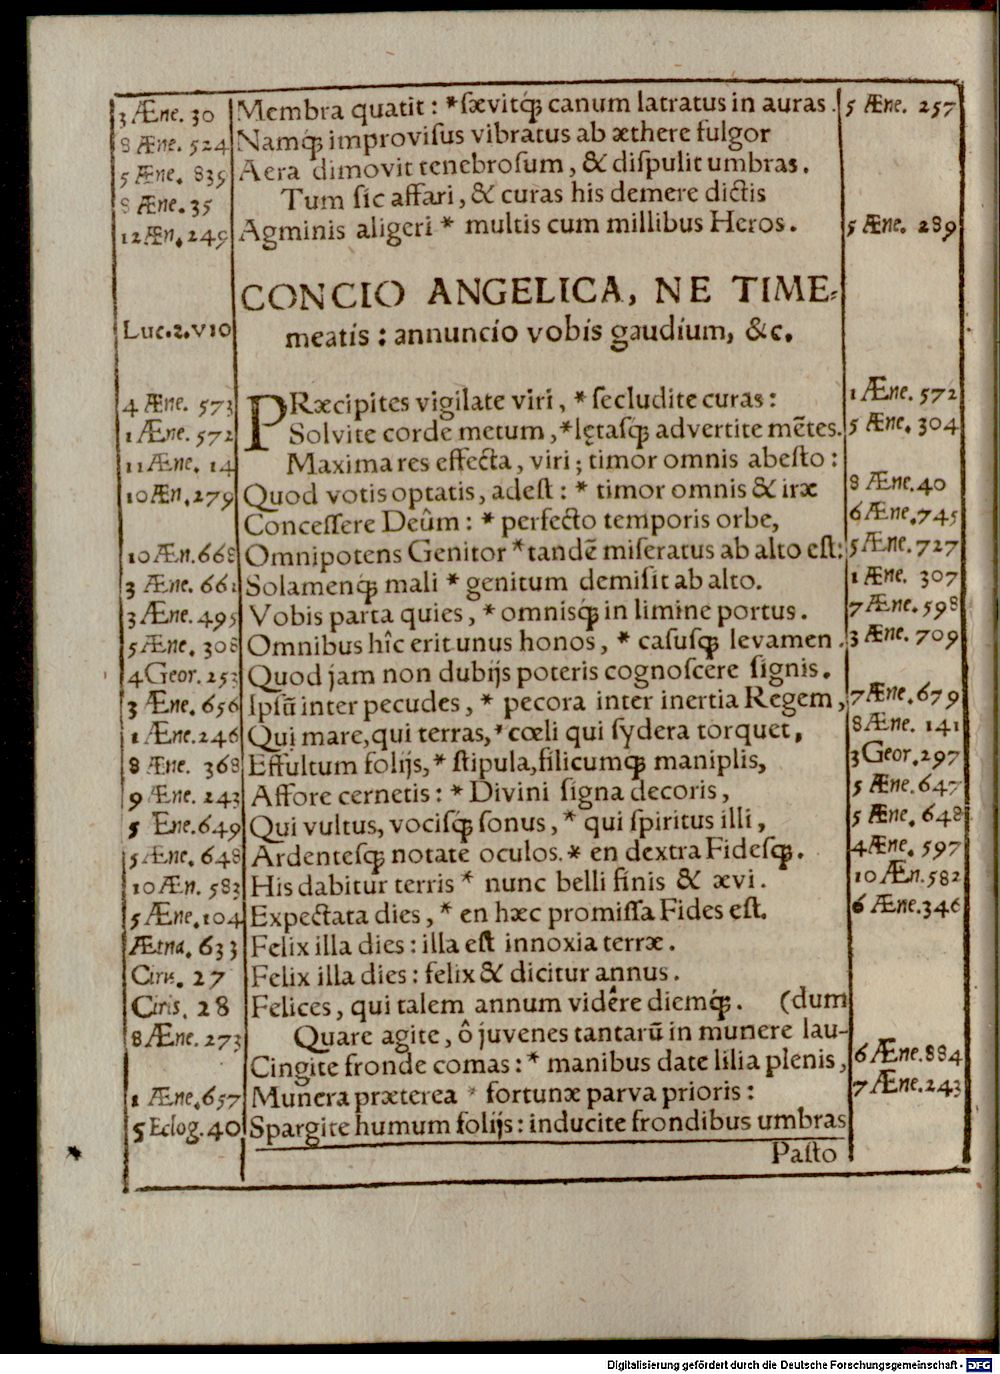 3 Æne. 30 Membra quatit : *sævitq́; canum latratus in auras. 5 Æne. 257
8 Æne. 524 Namq́; improvisus vibratus ab æthere fulgor
5 Æne. 839 Aera dimovit tenebrosum, & dispulit umbras.
8 Æne. 35 Tum sic affari, & curas his demere dictis
12Æn. 249 Agminis aligeri * multis cum millibus Heros. 5 Æne. 289
CONCIO ANGELICA, NE TIME-
Luc.2.v10 meatis : annuncio vobis gaudium, &c.
4 Æne. 573 PRæcipites vigilate viri, * secludite curas : 1 Æne. 572
1 Æne. 572 Solvite corde metum, *lętasq́; advertite mẽtes. 5 Æne. 304
11Æne. 14 Maxima res effecta, viri; timor omnis abesto :
10Æn. 279 Quod votis optatis, adest : * timor omnis & iræ 8 Æne.40
Concessere Deûm : * perfecto temporis orbe, 6Æne.745
10Æn.668 Omnipotens Genitor *tandẽ miseratus ab alto est: 5Æne.727
3 Æne. 661 Solamenq́; mali * genitum demisit ab alto. 1 Æne. 307
3Æne. 495 Vobis parta quies, * omnisq́; in limine portus. 7Æne. 598
5Æne. 308 Omnibus hîc erit unus honos, * casusq́; levamen. 3 Æne. 709
4Geor. 253 Quod jam non dubijs poteris cognoscere signis.
3 Æne. 656 Ipsũ inter pecudes, * pecora inter inertia Regem, 7Æne. 679
1 Æne.246 Qui mare, qui terras, *cœli qui sydera torquet, 8Æne. 141
8 Æne. 368 Effultum folijs, * stipula, filicumq́; maniplis, 3Geor.297
9 Æne. 243 Affore cernetis : * Divini signa decoris, 5 Æne.647
5 Ene.649 Qui vultus, vocisq́; sonus, * qui spiritus illi, 5 Æne. 648
5Æne. 648 Ardentesq́; notate oculos. * en dextra Fidesq́;. 4Æne. 597
10Æn. 583 His dabitur terris * nunc belli finis & ævi. 10Æn.582
5Æne.104 Expectata dies, * en hæc promissa Fides est. 6 Æne.346
Ætna. 633 Felix illa dies : illa est innoxia terræ.
Ciris. 27 Felix illa dies : felix & dicitur annus.
Ciris. 28 Felices, qui talem annum vidêre diemq́;. (dum
8Æne. 273 Quare agite, ô juvenes tantarũ in munere lau-
Cingite fronde comas : * manibus date lilia plenis, 6Æne.884
1 Æne.657 Munera præterea * fortunæ parva prioris : 7 Æne.243
5 Eclog. 40 Spargite humum folijs : inducite frondibus umbras
Pasto
Digitalisierung gefördert durch die Deutsche Forschungsgemeinschaft - DFG